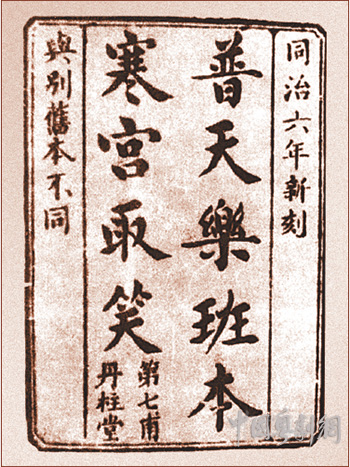 同治六年新刻
普天樂班本
寒宮取笑
第七甫
丹柱堂
與別舊本不同
中國粵劇網